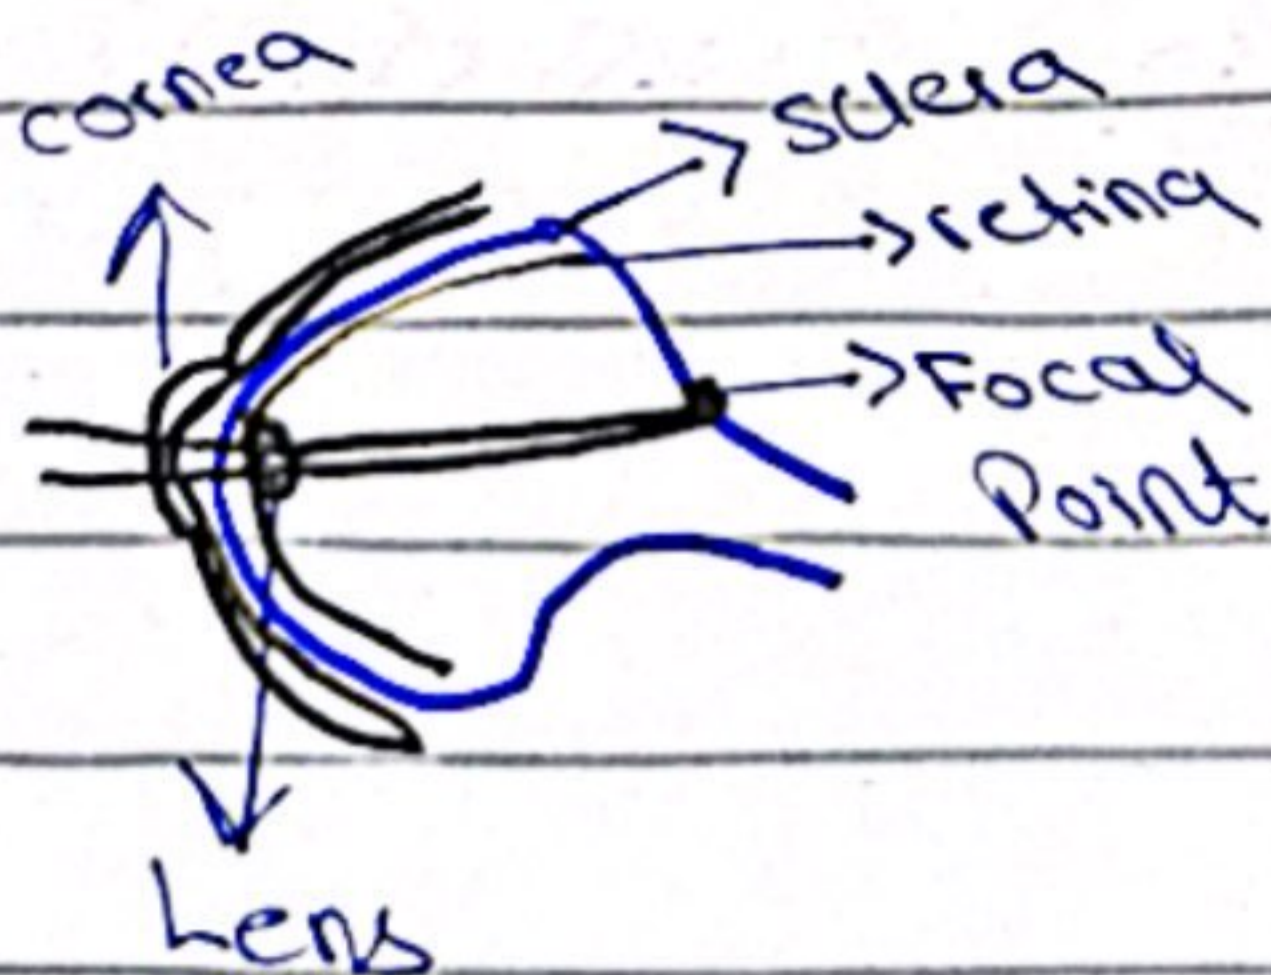 cornea
Sclera
retina
Focal
Point
Lens